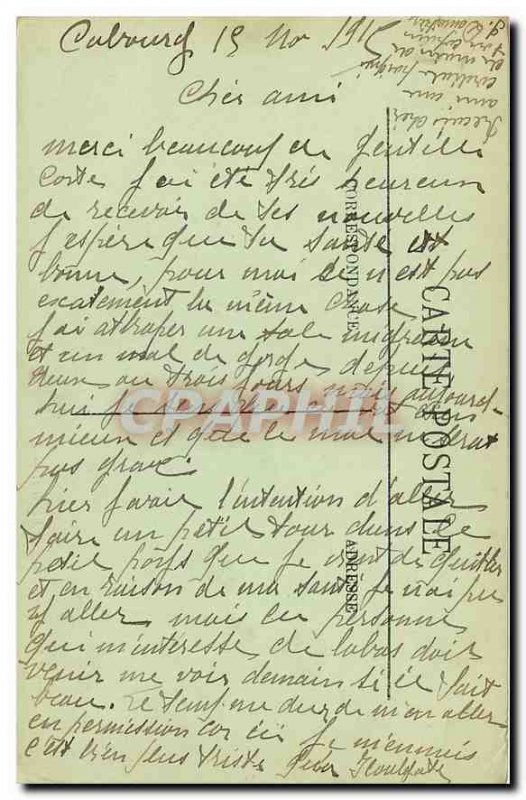 Cabourg 15 Nov 1915
Cher ami
merci beaucoup de gentille
carte j'ai été très heureux
de recevoir de tes nouvelles
j'espère que ta santé est
bonne, pour moi se n'est pas
la même chose
j'ai attraper une sale migraine
et un mal de gorge depuis
deux ou trois jours mais aujourd-
hui je
mieux et que le mal ne serat
pas grave.
hier j'avais l'intention d'aller
faire un petit tour dans le
petit pays que je vient de quitter
et en raison de ma santé je n'ai pu
y aller mais la personne
qui m'interesse de labas doit
venir me voir demain si il fait
beau. Le temp me dur de m'en aller
en permission car ici je m'ennuis
c'est bien plus triste
reçois cher
ami une
cordiale poignée
de main de
CORRESPONDANCE
CARTE POSTALE
ADRESSE
CPAPHIL